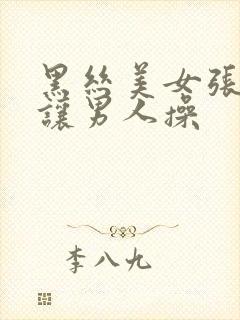 黑丝美女張
讓男人操
李八九